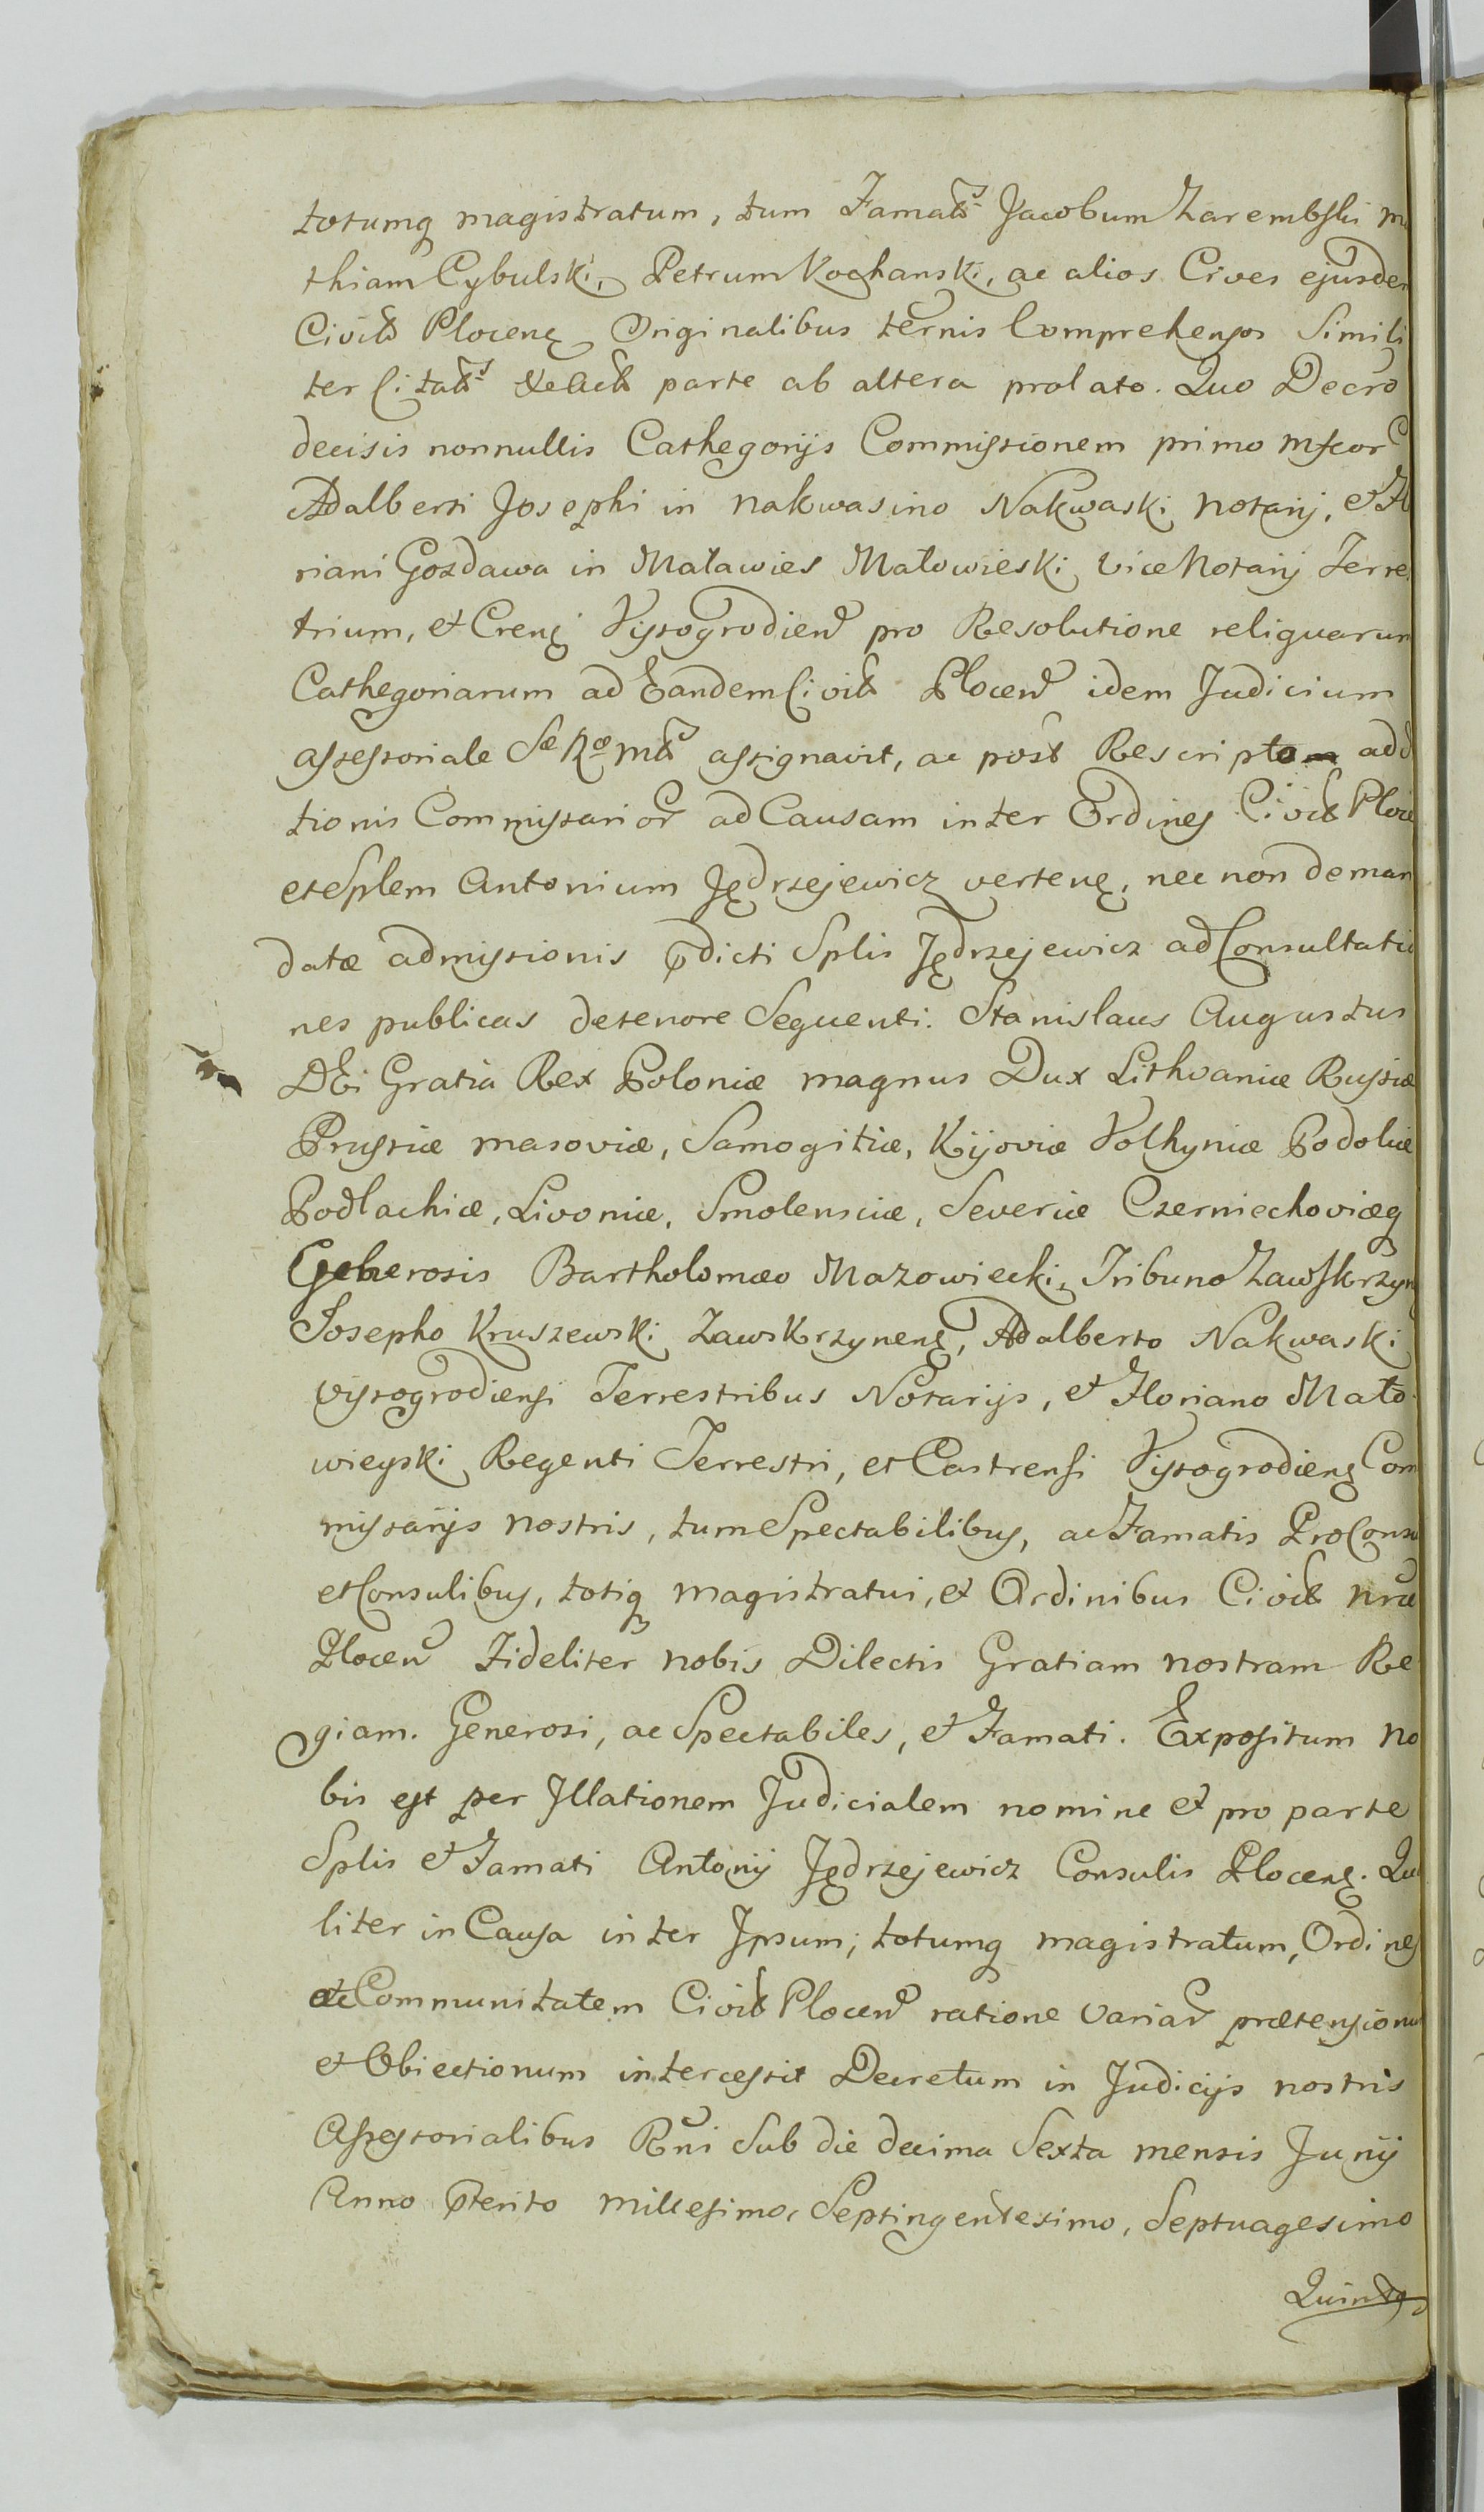 totumq magistratum, tum Famats Jacobum Zarembski Ma
thiam Cybulski, Petrum Kochanski, ac alios Cives ejusdem
Civitt Plocens Originalibus ternis Comprehensos Simili
ter Citats parte ab altera prolato. Quo Decro
decisis nonnullis Cathegorijs Commissionem primo Mfcor
Adalberti Josephi in Nakwasino Nakwaski Notarij, et Fl
riani Gozdawa in Maławies Małowieski vice Notarij Terres
trium, et Crens Vissogrodien pro Resolutione reliquarum
Cathegoriarum ad Eandem Civitt Plocen idem Judicium
assessoriale Sæ Ræ Mtts assignavit, ac post Rescriptom add
tionis Commissarior ad Causam inter Ordines Civitt Ploce
et Splem Antonium Jędrzejewicz vertens, nec non deman
datæ admissionis pdicti Splis Jędrzejewicz ad Consultatio
nes publicas de tenore Sequenti. Stanislaus Augustus
DEi Gratia Rex Poloniæ magnus Dux Lithvaniæ Russiæ
Prussiæ masoviæ, Samogitiæ, Kijoviæ Volhyniæ Podoliæ
Podlachiæ, Livoniæ, Smolensciæ, Severiæ Czerniechoviæq
Generosis Bartholomæo Mazowiecki, Tribuno Zawskrzyn
Josepho Kruszewski Zawskrzynens, Adalberto Nakwaski
Vissogrodiensi Terrestribus Notarijs, et Floriano Mało
wieyski Regenti Terrestri, et Castrensi Vissogrodiens Com
missarijs nostris, tum Spectabilibus, ac Famatis ProConsu
et Consulibus, totiq magistratui, et Ordinibus Civitt nræ
Plocen Fideliter nobis Dilectis Gratiam nostram Re
giam. Generosi, ac Spectabiles, et Famati. Expositum no
bis est per Illationem Judicialem nomine et pro parte
Splis et Famati Antonij Jędrzejewicz Consulis Plocens. Qua
liter in Causa inter Ipsum, totumq magistratum, Ordines
ac Communitatem Civitt Plocen ratione variar prætensionu
et Obiectionum intercessit Decretum in Judicijs nostris
Assessorialibus Rni Sub die decima Sexta mensis Junij
Anno pterito millesimo, Septingentesimo, Septuagesimo
Quinto